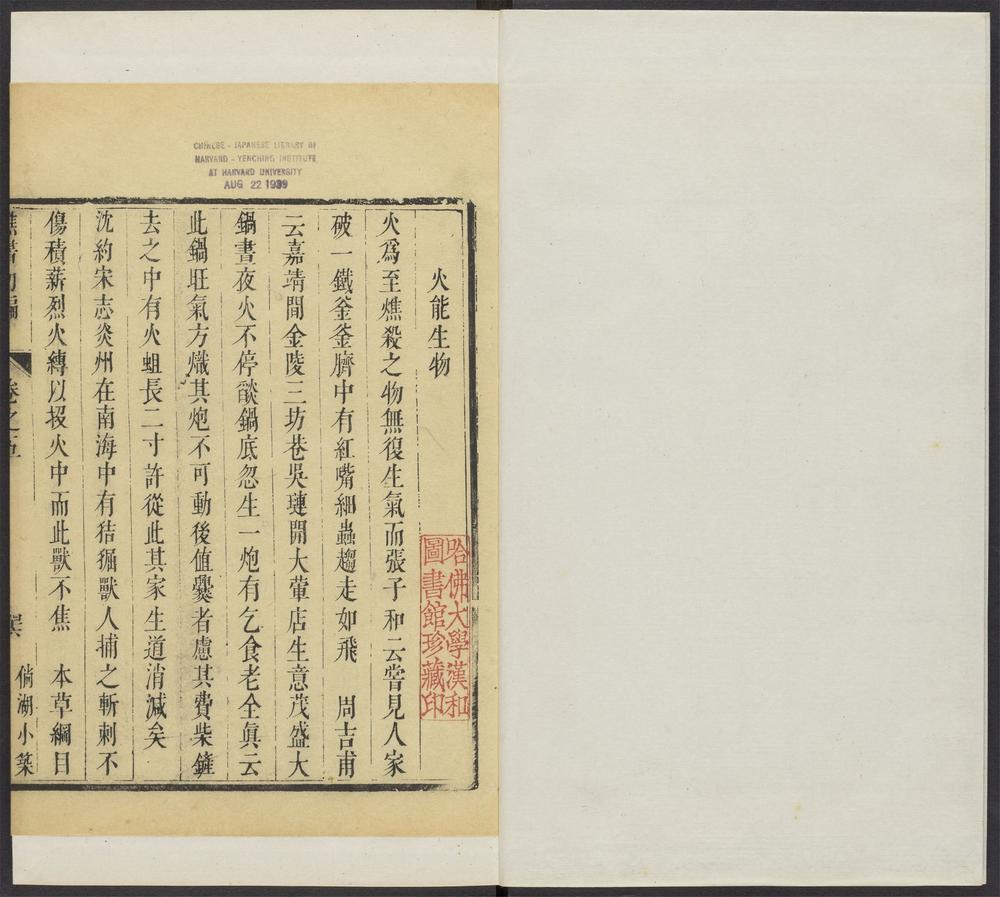 CHINESE - JAPANESE LIBRARY OF
HARVARD - YENCHING INSTITUTE
AT HARVARD UNIVERSITY
AUG 22 1939
哈佛大學漢和
圖書館珍藏印
火能生物
火爲至燋殺之物無復生氣而張子和云嘗見人家
破一鐵釜釜臍中有紅嘴細蟲趨走如飛 周吉甫
云嘉靖間金陵三坊巷吳璉開大葷店生意茂盛大
鍋晝夜火不停歘鍋底忽生一炮有乞食老全眞云
此鍋旺氣方熾其炮不可動後值爨者慮其費柴鏟
去之中有火蛆長二寸許從此其家生道消減矣
沈約宋志炎州在南海中有狤𤟎獸人捕之斬刺不
傷積薪烈火縛以投火中而此獸不焦 本草綱目
樵書初編
卷之五
倘湖小築